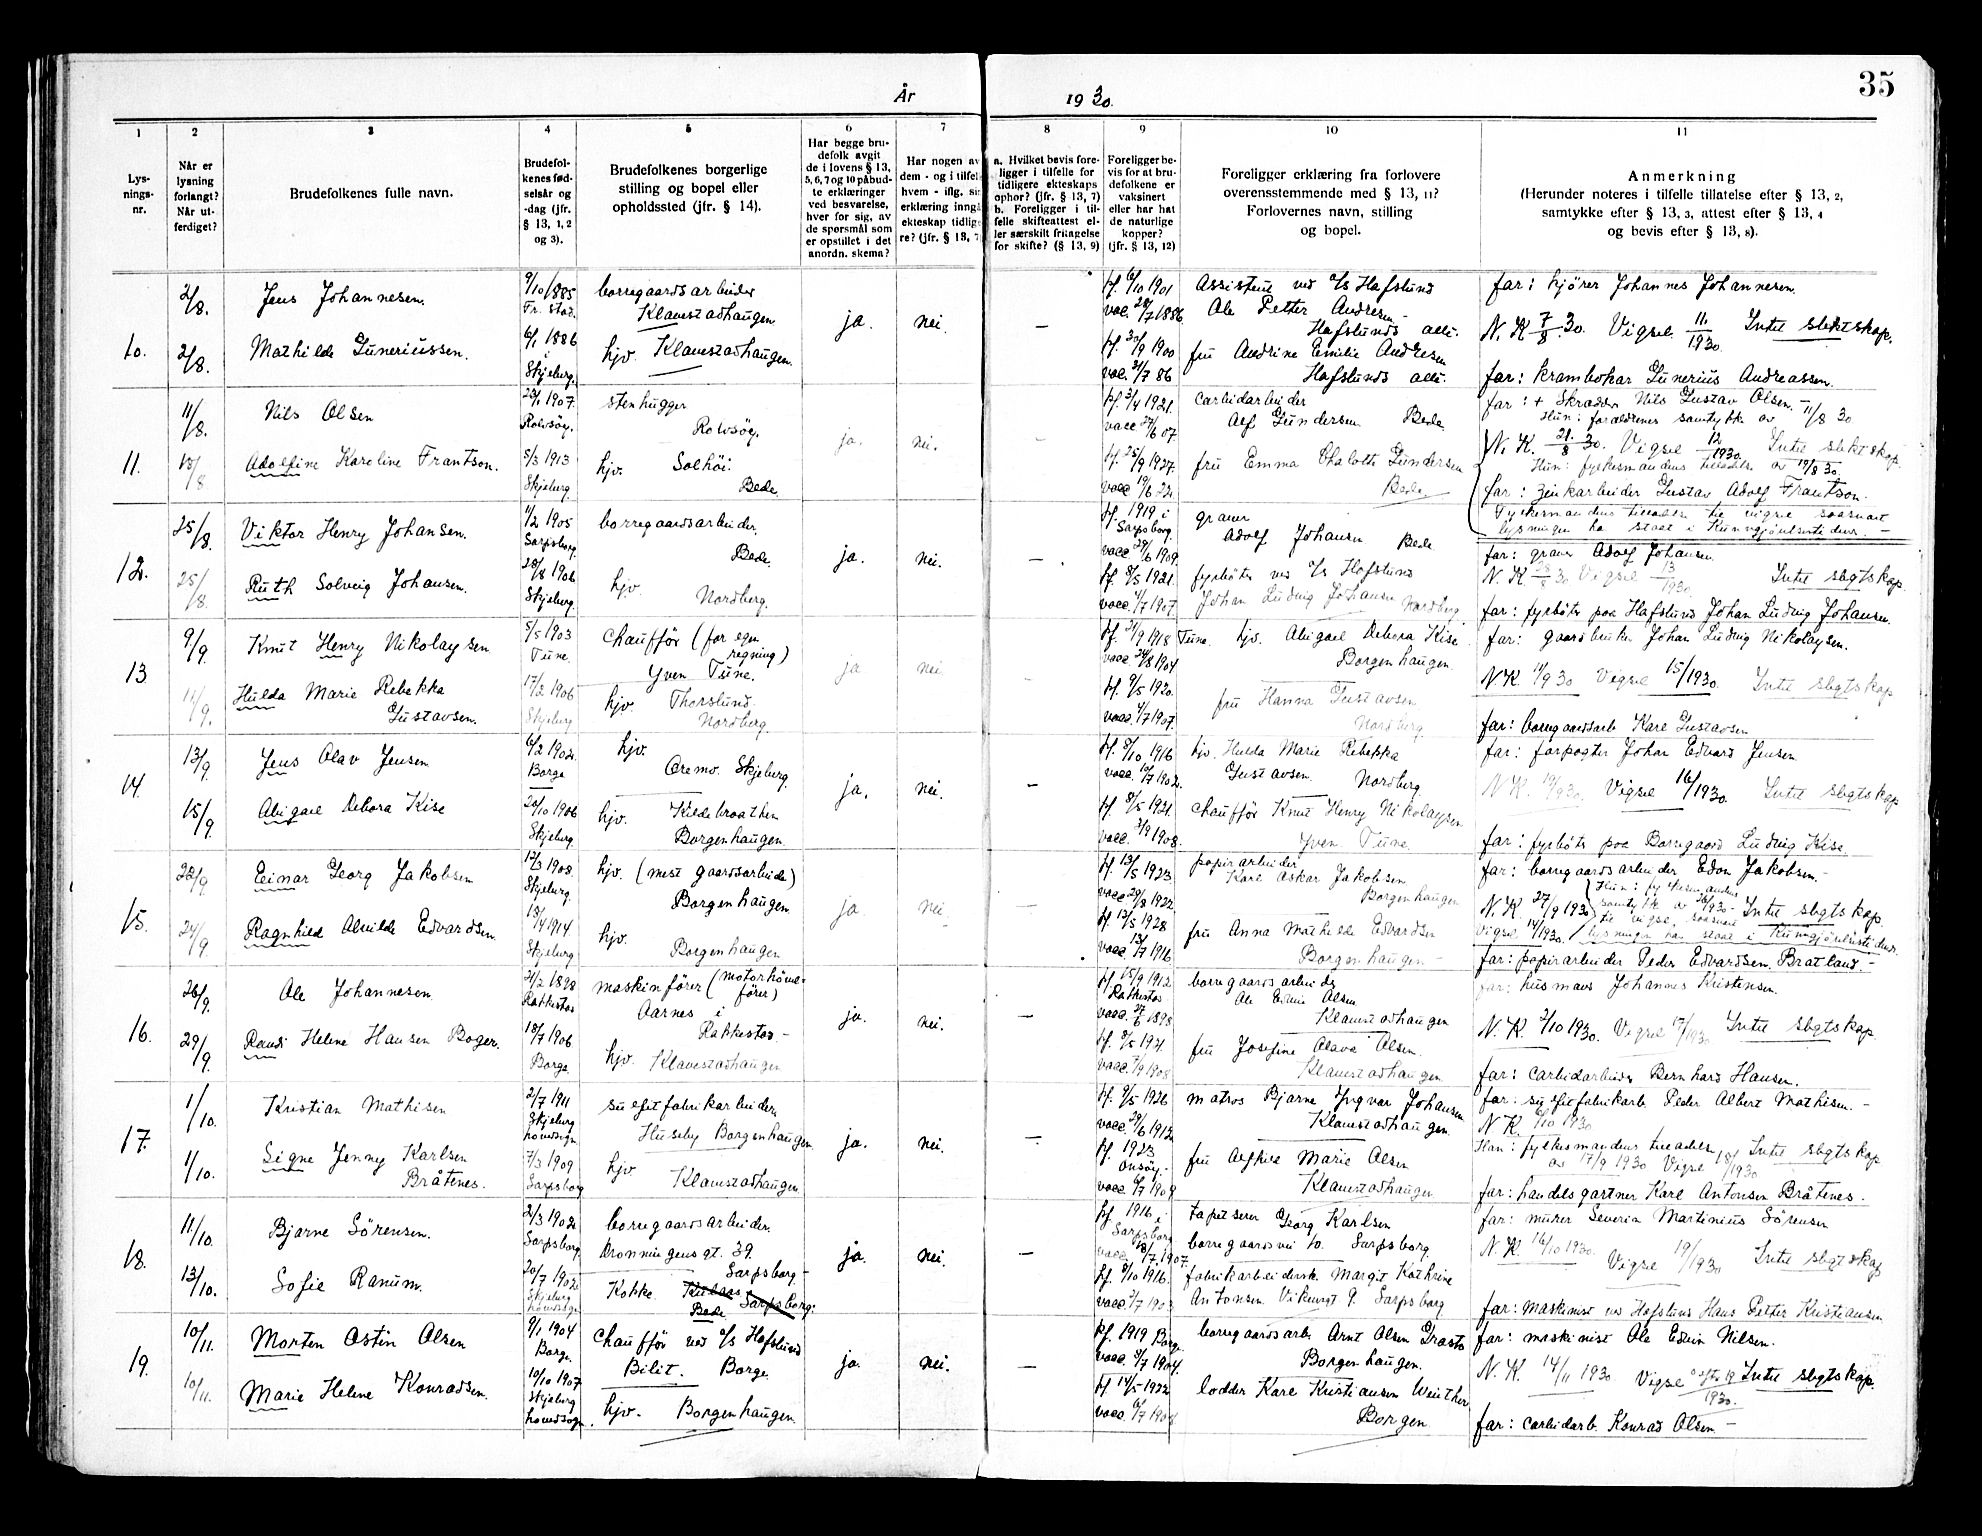 35
År 1930.
1 2 3 4 5 6 7 8 9 10 11
Lys-
nings-
nr.
Når er
lysning
forlangt?
Når ut-
ferdiget?
Brudefolkenes fulle navn.
Brudefol-
kenes fød-
selsår og
-dag (jfr.
§ 13, 1, 2
og 3).
Brudefolkenes borgerlige
stilling og bopel eller
opholdssted (jfr. § 14).
Har begge bru-
defolk avgit
de i lovens § 13,
5, 6, 7 og 10 påbud-
te erklæringer
ved besvarelse,
hver for sig, av
de spørsmål som
er opstillet i det
anordn. skema?
Har nogen av
dem - og i tilfel
hvem - iflg. si
erklæring inngå
ekteskap tidlig
re? (jfr. § 13, 7
a. Hvilket bevis fore-
ligger i tilfelle for
tidligere ekteskaps
ophor? (jfr. § 13, 7)
b. Foreligger i til-
felle skifteattest el-
ler særskilt fritagelse
for skifte? (§ 13, 9)
Foreligger be-
vis for at bru-
defolkene er
vaksinert
eller har hat
de naturlige
kopper?
(jfr. § 13, 12)
Foreligger erklæring fra forlovere
overensstemmende med § 13, 11?
Forlovernes navn, stilling
og bopel.
Anmerkning
(Herunder noteres i tilfelle tillatelse efter § 13, 2,
samtykke efter § 13, 3, attest efter § 13, 4
og bevis efter § 13, 8).
10.
2/8. Jens Johannesen. 9/10 1885 Fr.stad.
borregaardsarbeider
Klavestadhaugen
2/8. Mathilde Guneriussen. 6/1 1886 i Skjeberg.
hjv. Klavestadhaugen.
ja. nei. —
kf. 6/10 1901
vac. 28/7 1886
kf. 30/9 1900
vac. 21/7 86
Assistent ved A/S Hafslund
Ole Petter Andresen -
Hafslunds allé.
fru Andrine Emilie Andresen
Hafslunds allé.
far: kjører Johannes Johannesen.
N.K. 7/8 30. Vigsel 11./1930. Intet slektskap.
far: krambokar Gunerius Andreassen.
11.
11/8. Nils Olsen 1907. Rolvsøy.
stenhugger
Rolvsøy.
18/8 Adolfine Karoline Frantson. 5/3 1913 Skjeberg.
hjv. Solhöi.
Bede.
ja. nei. —
kf. 3/4 1921.
vacc 27/6 07
kf. 25/9 1927.
vacc 19/6 22
carbidarbeider
Alf Gundersen Bede
fru Emma Chalotte Gundersen
Bede
far: + Skrædder Nils Gustav Olsen. -
Hun: forældrenes samtykke av 11/8 30
N.K. 21./8 30. Vigsel 12/1930. Intet slektskap.
Hun: fylkesmandens tilladelse av 19/8 30.
far: zinkarbeider Gustav Adolf Frantson.
Fylkesmandens tilladelse til vigsel saasnart
lysningen har staat i Kunngjörelsestidende. —
12.
25/8. Viktor Henry Johansen. 11/2 1905 Sarpsborg.
borregaardsarbeider.
Bede.
25/8. Ruth Solveig Johansen. 28/8 1906 Skjeberg.
hjv. Nordberg.
ja. nei. —
kf. 1919 i
Sarpsborg.
vacc 29/6 1909.
kf. 8/5 1921.
vacc. 4/7 1907.
graver
Adolf Johansen Bede
fyrböter ved A/S Hafslund
Johan Ludvig Johansen Nordberg
far: graver Adolf Johansen.
N.K. 28/8 30 Vigsel 13/1930. Intet slegtskap.
far: fyrböter paa Hafslund Johan Ludvig Johansen.
13
9/9. Knut Henry Nikolaysen 5/5 1903 Tune.
chaufför (for egen
regning)
Yven Tune.
11/9. Hulda Marie Rebekka
Gustavsen. 17/2 1906 Skjeberg
hjv. Thorslund.
Nordberg.
ja nei. —
kf. 21/9 1918 Tune.
vacc. 24/8 1904
kf. 9/5 1920.
vacc. 4/7 1907.
hjv. Abigael Debora Kise
Borgenhaugen.
fru Hanna Gustavsen
Nordberg
far: gaardbruker Johan Ludvig Nikolaysen.
N.K. 11/9 30 Vigsel 15/1930. Intet slegtskap
far: borregaardsarb Karl Gustavsen
14.
13/9 Jens Olav Jensen 6/2 1902. Borge
hjv.
Oremo. Skjeberg.
15/9 Abigael Debora Kise 20/10 1906 Skjeberg.
hjv. Kildebraathen
Borgenhaugen.
ja. nei. —
kf. 8/10 1916
vacc. 10/7 1902.
kf. 8/5 1921.
vacc. 2/9 1908.
hjv. Hulda Marie Rebekka
Gustavsen. Nordberg.
chaufför Knut Henry Nikolaysen
Yven Tune
far: forpagter Johan Edvard Jensen
N.K. 19/9 30. Vigsel 16/1930. Intet slegtskap
far: fyrböter paa Borregaard Ludvig Kise.
15.
22/9 Einar Georg Jakobsen 12/3 1908. Skjeberg.
hjv. (mest gaardsarbeide)
Borgenhaugen.
24/9. Ragnhild Alvilde Edvardsen. 15/4 1914 Skjeberg
hjv.
Borgenhaugen
ja nei. —
kf. 13/5 1923
vacc 29/8 1922.
kf. 13/5 1928
vacc. 13/7 1916
papirarbeider
Karl Oskar Jakobsen
Borgenhaugen
fru Anna Mathilde Edvardsen
Borgenhaugen —
far: borregaardsarbeider Edon Jakobsen. -
N.K. 27/9 1930 Hun: fylkesmandens
samtykke av 26/9 1930 - Intet slegtskap.
Vigsel 14/1930. til vigsel saasnart
lysningen har staat i Kunngjörelsestidende.
far: papirarbeider Peder Edvardsen. Bratland. -
16.
26/9. Ole Johannesen. 21/2 1898 Rakkestad
maskinförer (motorhövel-
förer)
Aarnes i
Rakkestad -
29/9. Randi Helene Hansen Boger. 18/7 1906 Borge.
hjv. Klavestadhaugen
ja. nei. —
kf. 15/9 1912
Rakkestad
vacc. 27/6 1898
kf. 8/5 1921.
vacc. 7/9 1908
borregaardsarbeider
Ole Edvin Olsen
Klavestadhaugen
fru Josefine Olava Olsen.
Klavestadhaugen
far: husmand Johannes Kristensen.
N.K. 2/10 1930. Vigsel 17/1930 Intet slegtskap
far: carbidarbeider Bernhard Hansen.
17.
1/10. Kristian Mathisen 2/7 1911 Skjeberg hovedsogn.
sulfitfabrikarbeider
Huseby Borgenhaugen
1/10. Signe Jenny Karlsen
Bråtenes. 7/3 1909 Sarpsborg
hjv
Klavestadhaugen
ja. nei. —
kf. 9/5 1926
vacc. 29/6 1912
kf. 1923
Onsöy.-
vacc. 6/7 1909
matros Bjarne Yngvar Johansen
Klavestadhaugen.
fru Alfhild Marie Olsen
Klavestadhaugen
far: sulfitfabrikarb. Peder Albert Mathisen. -
N.K. 6/10 1930
Han: fylkesmandens tilladelse
av 17/9 1930 Vigsel 18/1930 Intet slegtskap
far: handelsgartner Karl Antonsen Bråtenes.
18.
11/10. Bjarne Sörensen. 21/3 1902 Sarpsborg.
borregaardsarbeider.
Dronningensgt. 39.
Sarpsborg-
13/10. Sofie Ranum. 20/7 1902 Skjeberg hovedsogn
Kokke. Sarpsborg:
Bede
ja. nei. —
kf. 1916 i
Sarpsborg
vacc. 18/7 1907.
kf. 8/10 1916.
vacc. 7/7 1903
tapetserer Georg Karlsen
borregaardsvei 10. Sarpsborg
fabrikarbeidersk. Margit Kathrine
Antonsen. Vikensgt 9. Sarpsborg
far: murer Severin Martinius Sörensen
N.K. 16/10 1930. Vigsel 19/1930 Intet slegtskap
far: maskinist ved Hafslund Hans Petter Kristiansen
19.
10/11. Morten Ostin Olsen 9/1 1904 Borge.
chaufför ved A/S Hafslund
Bilit. Borge.
10/11. Marie Helene Konradsen. 10/10 1907 Skjeberg hovedsogn.
hjv. Borgenhaugen
ja. nei. —
kf. 1919 Borge.
vacc. 8/7 1904.
kf 14/5 1922
vacc. 6/7 1908
borregaardsarb Arnt Olsen Grasto
Borgenhaugen.
lodder Karl Kristiansen Weither
Borgen
far: maskinist Ole Edvin Nilsen.
N.K. 14/11 1930 Vigsel 1930. Intet slegtskap.
far: carbidarb. Konrad Olsen. —